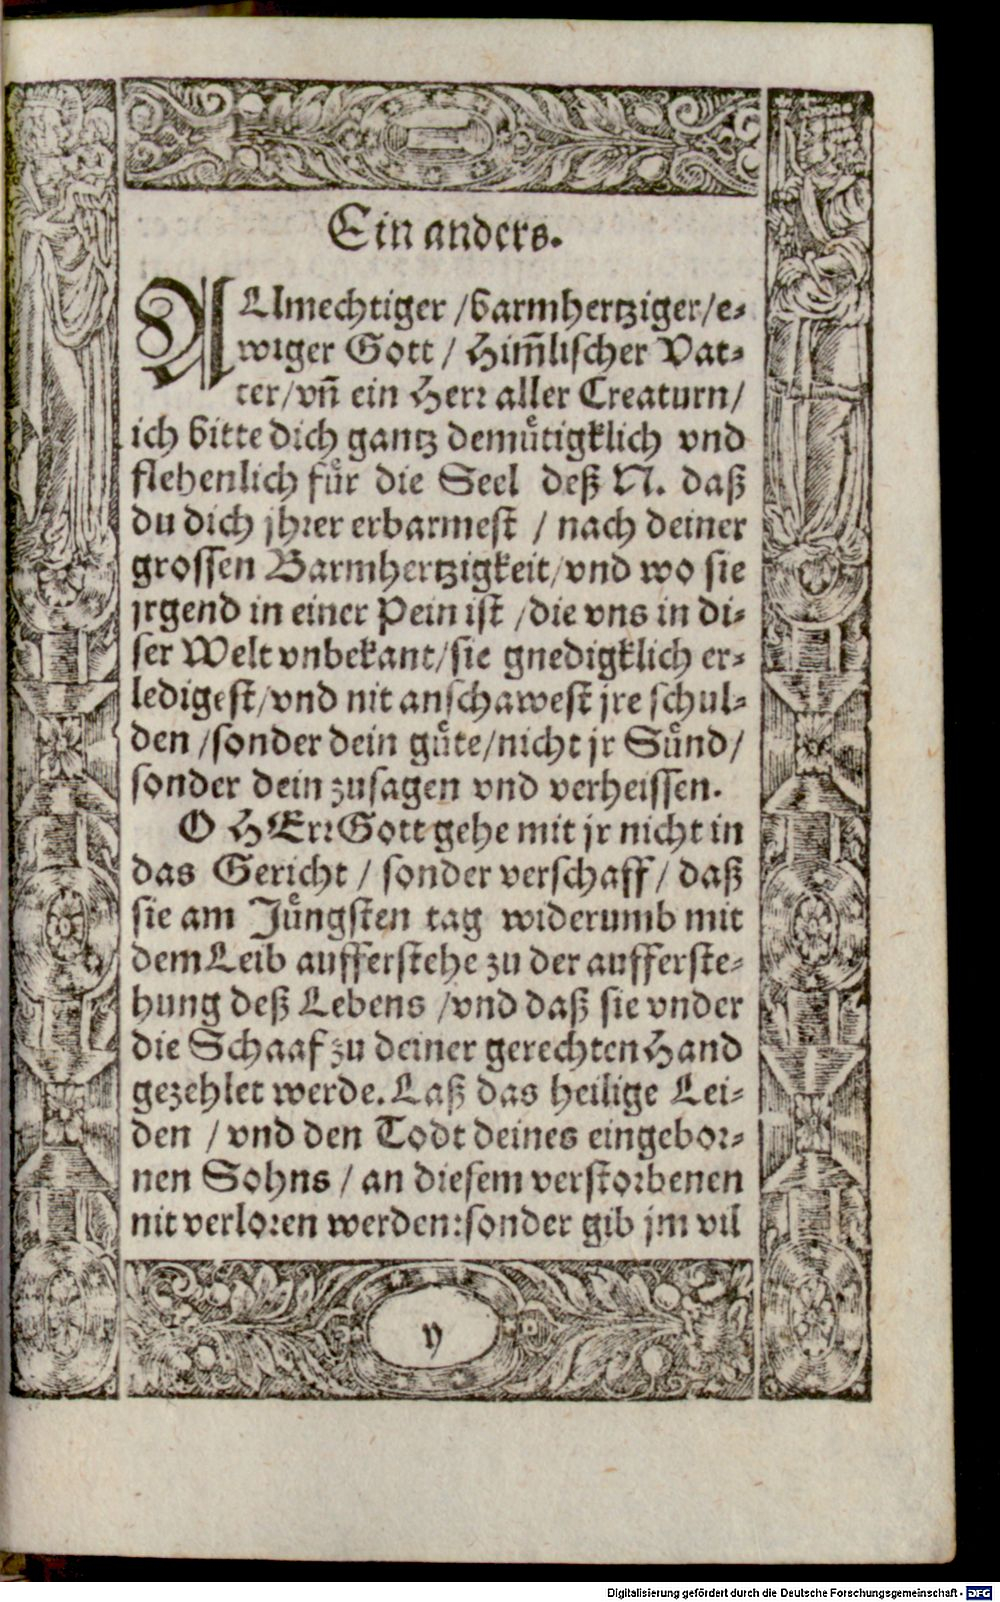 Ein anders.
ALlmechtiger /barmhertziger/e⸗
wiger Gott / Him̃lischer Vat⸗
ter/vñ ein Herꝛ aller Creaturn/
ich bitte dich gantz demuͤtigklich vnd
flehenlich fuͤr die Seel deß N. daß
du dich jhꝛer erbarmest / nach deiner
grossen Barmhertzigkeit/vnd wo sie
jrgend in einer Pein ist /die vns in di⸗
ser Welt vnbekant/sie gnedigklich er⸗
ledigest/vnd nit anschawest jre schul⸗
den /sonder dein guͤte/nicht jr Suͤnd/
sonder dein zusagen vnd verheissen.
O HErꝛ Gott gehe mit jr nicht in
das Gericht / sonder verschaff/ daß
sie am Juͤngsten tag widerumb mit
dem Leib aufferstehe zu der aufferste⸗
hung deß Lebens /vnd daß sie vnder
die Schaaf zu deiner gerechten Hand
gezehlet werde. Laß das heilige Lei⸗
den / vnd den Todt deines eingeboꝛ⸗
nen Sohns / an diesem verstoꝛbenen
nit verloꝛen werden:sonder gib jm vil
y
Digitalisierung gefördert durch die Deutsche Forschungsgemeinschaft - DFG